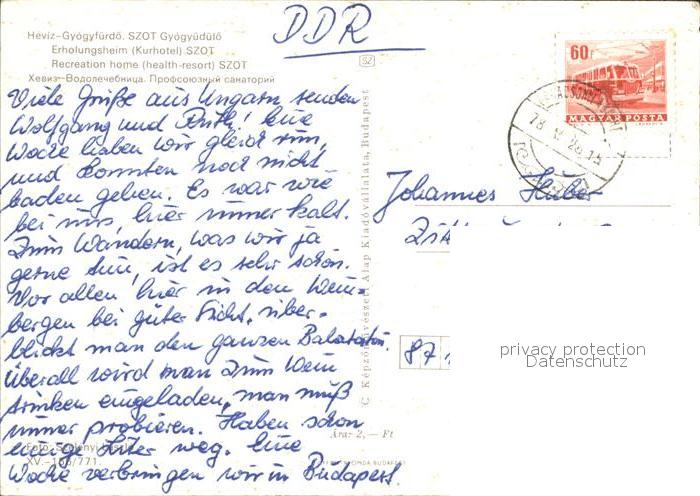 DDR
Hévíz-Gyógyfürdő. SZOT Gyógyüdülő
Erholungsheim (Kurhotel) SZOT
Recreation home (health-resort) SZOT
Хевиз-Водолечебница. Профсоюзный санаторий
SZ
60f
MAGYAR POSTA
78
Viele Grüße aus Ungarn senden
Wolfgang und Ruth! Eine
Woche haben wir gleich rum,
und konnten noch nicht
baden gehen. Es war wie
bei uns, hier immer kalt.
Zum Wandern, was wir ja
gerne tun, ist es sehr schön.
Vor allen hier in den Wein-
bergen bei guter Sicht, über-
blickt man den ganzen Balaton.
Überall wird man zum Wein
trinken eingeladen, man muß
immer probieren. Haben schon
einige Liter weg. Eine
Woche verbringen wir in Budapest.
Johannes Huber
87
privacy protection
Datenschutz
© Képzőművészeti Alap Kiadóvállalata, Budapest
Ára: 2,— Ft
XV.—155/771.